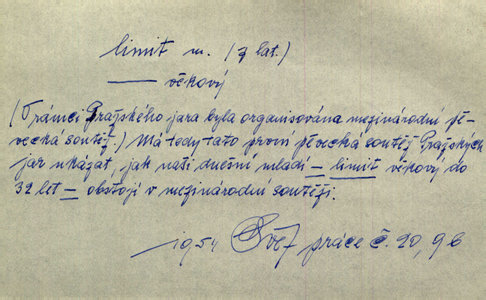 limit m. (z lat.)
— věkový
(V rámci Pražského jara byla organisována mezinárodní pě-
vecká soutěž.) Má tedy tato první pěvecká soutěž Pražských
jar ukázat, jak naši dnešní mladí — limit věkový do
32 let — obstojí v mezinárodní soutěži.
1954 Svět práce č. 20, 9 b